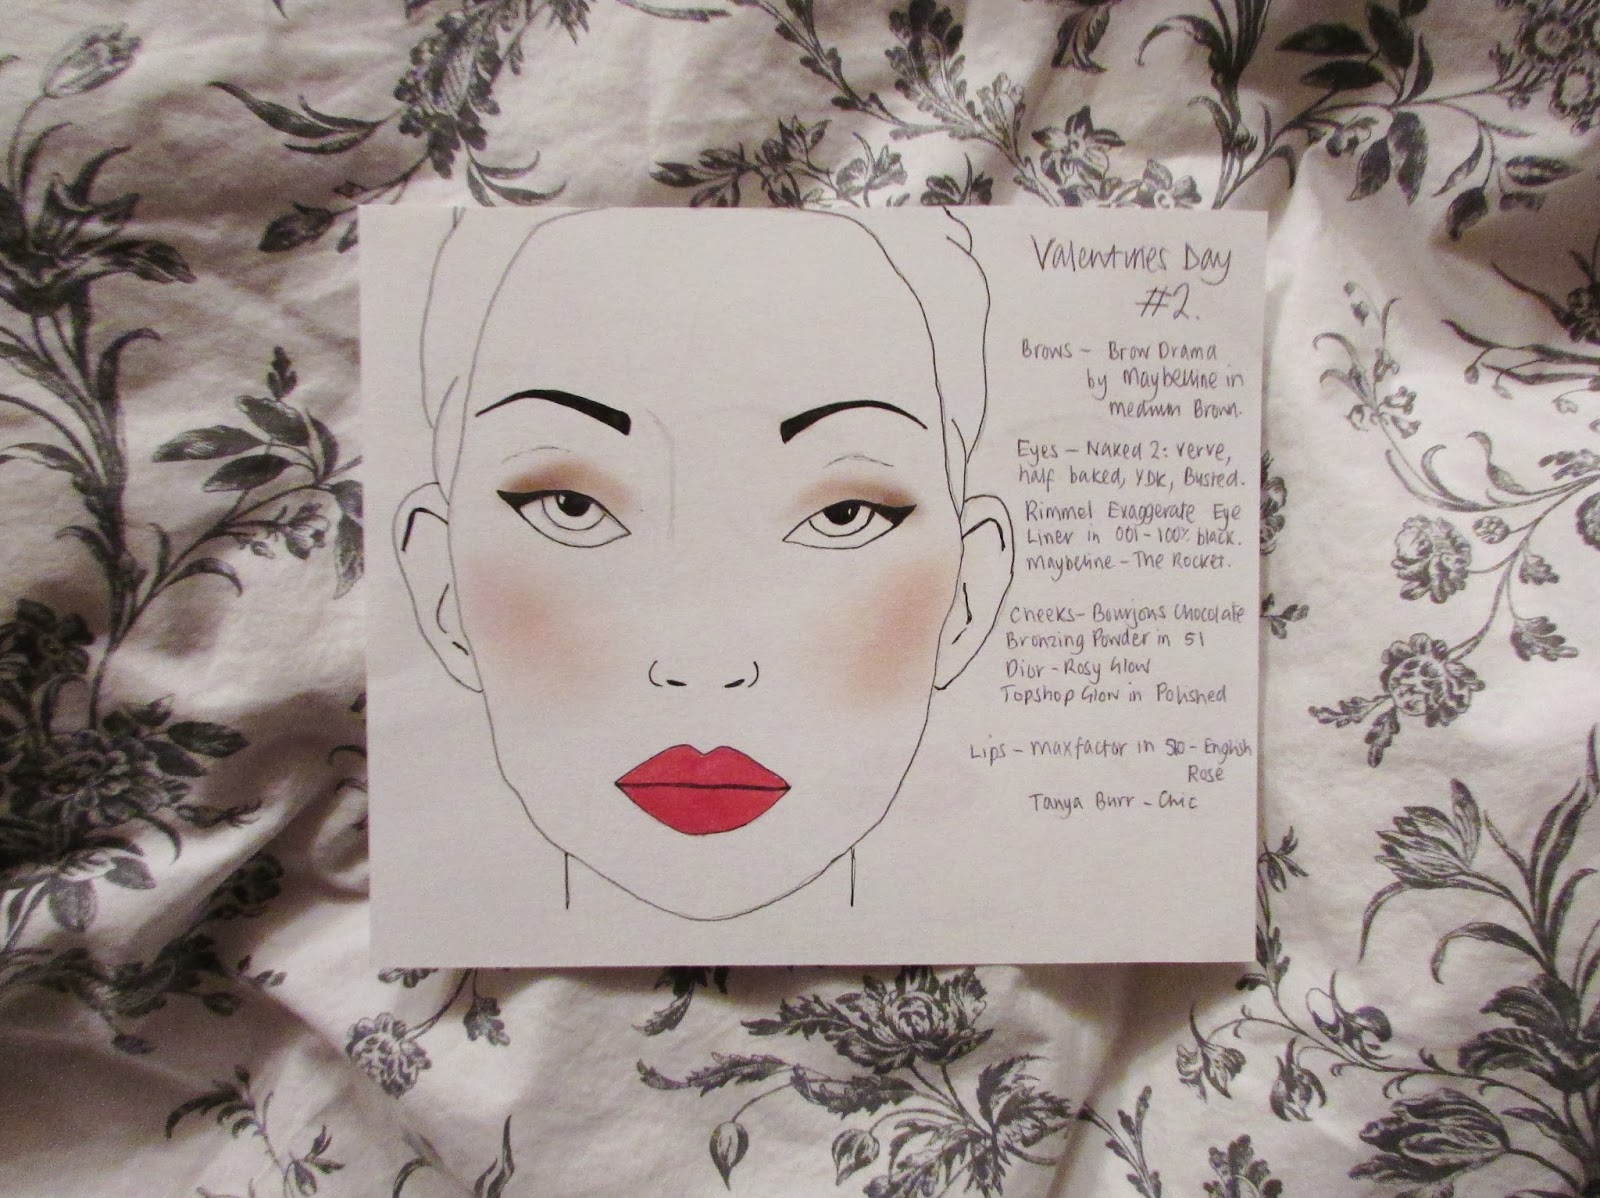 Valentines Day
#2.
Brows - Brow Drama
by Maybelline in
medium Brown.
Eyes - Naked 2: Verve,
half baked, YDK, Busted.
Rimmel Exaggerate Eye
Liner in 001 - 100% black.
Maybelline - The Rocket.
Cheeks - Bourjous Chocolate
Bronzing Powder in 51
Dior - Rosy Glow
Topshop Glow in Polished
Lips - maxfactor in 510 - English
Rose
Tanya Burr - Chic